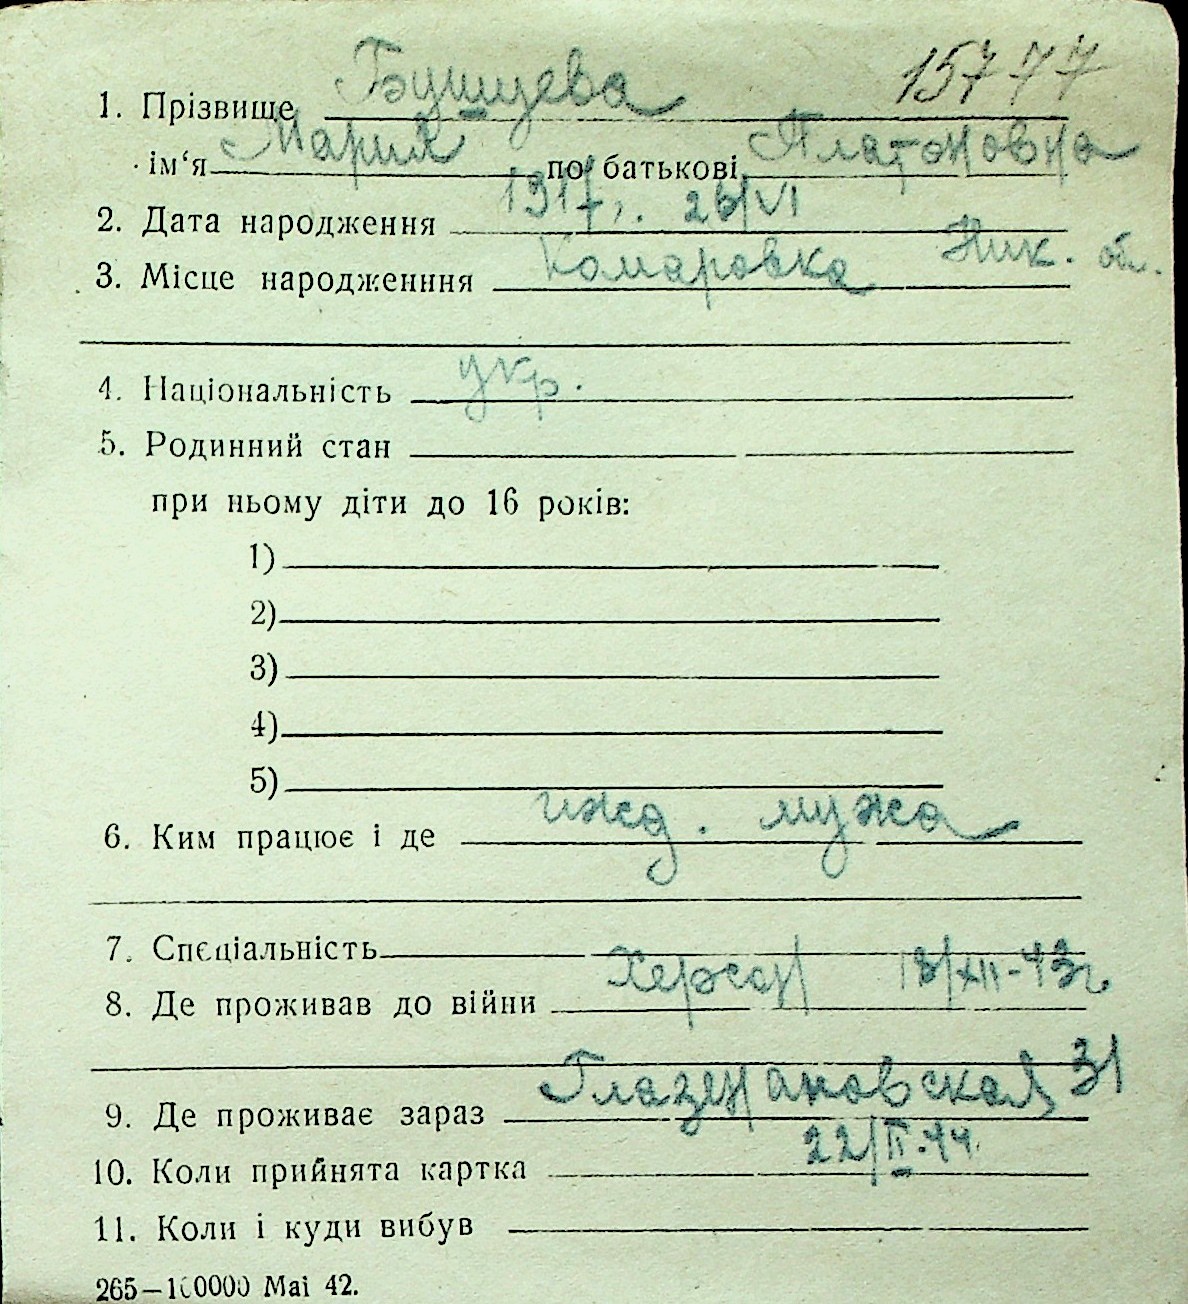 15777
1. Прізвище Бушуева
ім‘я Мария по батькові Платоновна
2. Дата народження 1917, . 26/VI
3. Місце народженння Комаровка Ник. обл.
4. Національність укр.
5. Родинний стан
при ньому діти до 16 років:
1)
2)
3)
4)
5)
6. Ким працює і де ижд. мужа
7. Спєціальність
8. Де проживав до війни Херсон 18/XII-43г.
9. Де проживає зараз 31
10. Коли прийнята картка 22/II.44.
11. Коли і куди вибув
265—100000 Mai 42.